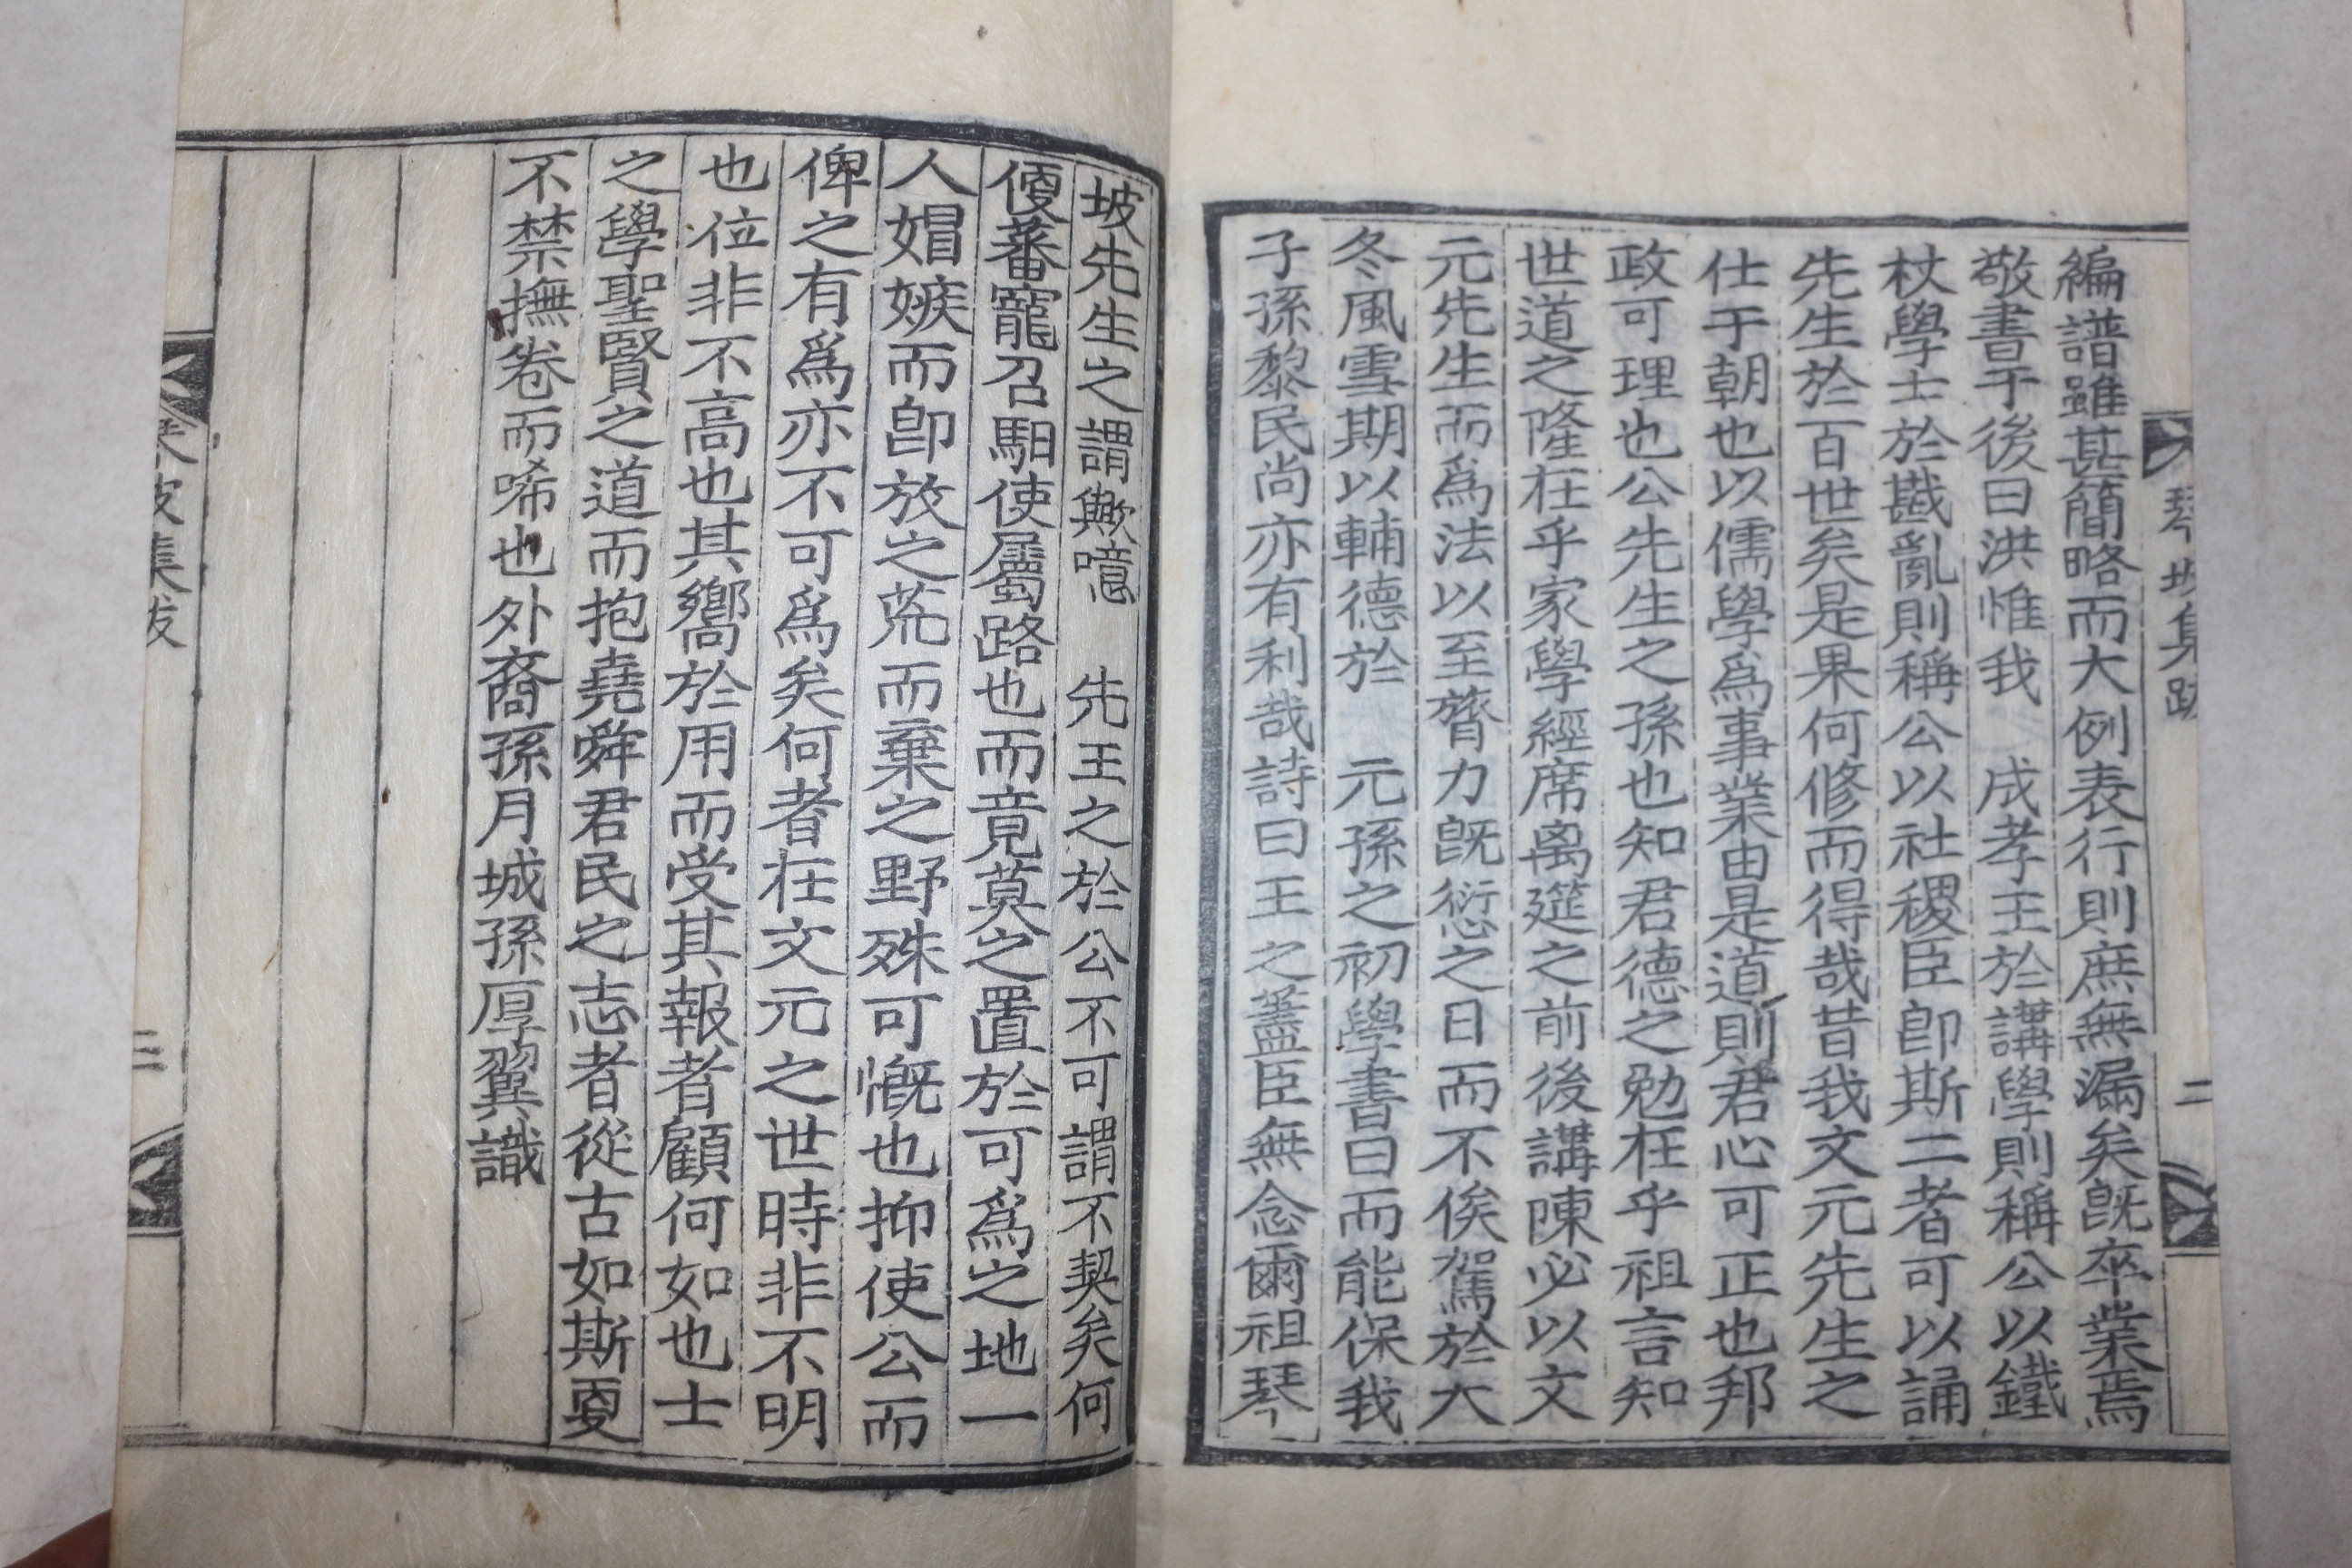 編譜雖甚簡略而大例表行則庶無漏矣旣卒業焉
敬書于後曰洪惟我 成孝主於講學則稱公以鐵
杖學士於戡亂則稱公以社稷臣卽斯二者可以誦
先生於百世矣是果何修而得哉昔我文元先生之
仕于朝也以儒學爲事業由是道則君心可正也邦
政可理也公先生之孫也知君德之勉在乎祖言知
世道之隆在乎家學經席离筵之前後講陳必以文
元先生而爲法以至膂力旣愆之日而不俟駕於大
冬風雪期以輔德於 元孫之初學書曰而能保我
子孫黎民尚亦有利哉詩曰王之藎臣無念爾祖琴
坡先生之謂歟噫 先王之於公不可謂不契矣何
優蕃寵召馹使屬路也而竟莫之置於可爲之地一
人娼嫉而卽放之荒而棄之野殊可慨也抑使公而
俾之有爲亦不可爲矣何者在文元之世時非不明
也位非不高也其嚮於用而受其報者顧何如也士
之學聖賢之道而抱堯舜君民之志者從古如斯戞
不禁撫卷而唏也外裔孫月城孫厚翼識
琴坡集跋
二
坡集跋
三